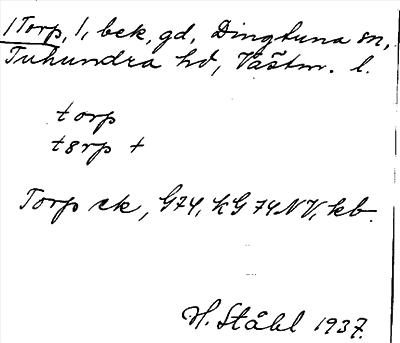 /Torp, /, bek, gd, Dingtuna sn,
Tuhundra hd, Västm. l.
torp
tɜrp +
Torp ek, G74, KG 74NV, kb.
H. Ståhl 1937.